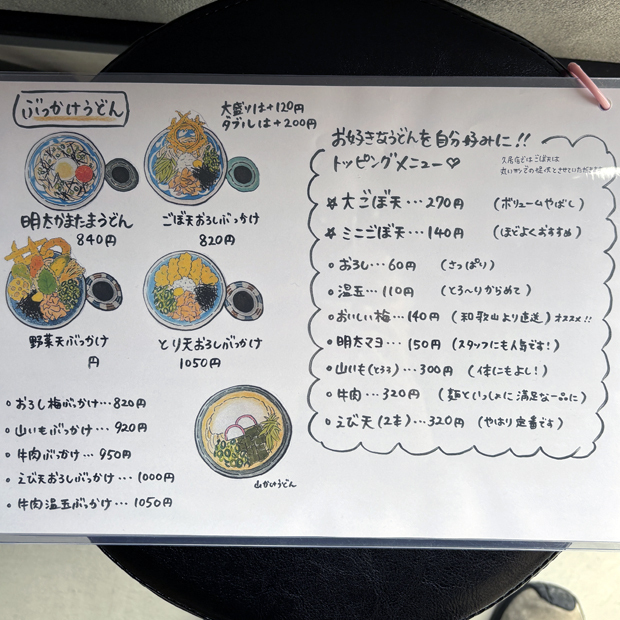 ぶっかけうどん
大盛りは+120円
ダブルは+200円
明太かまたまうどん
840円
ごぼ天おろしぶっかけ
820円
野菜天ぶっかけ
円
とり天おろしぶっかけ
1050円
• おろし梅ぶっかけ…820円
• 山いもぶっかけ…920円
• 牛肉ぶっかけ…950円
• えび天おろしぶっかけ…1000円
• 牛肉温玉ぶっかけ…1050円
山かけうどん
お好きなうどんを自分好みに!!
トッピングメニュー♡
☆ 大ごぼ天…270円 (ボリュームやばし)
☆ ミニごぼ天…140円 (ほどよくおすすめ)
• おろし…60円 (さっぱり)
• 温玉…110円 (とろ〜りからめて)
• おいしい梅…140円 (和歌山より直送) オススメ!!
• 明太マヨ…150円 (スタッフにも人気です!)
• 山いも(とろろ)…300円 (体にもよし!)
• 牛肉…320円 (麺といっしょに満足な一品に)
• えび天(2本)…320円 (やはり定番です)